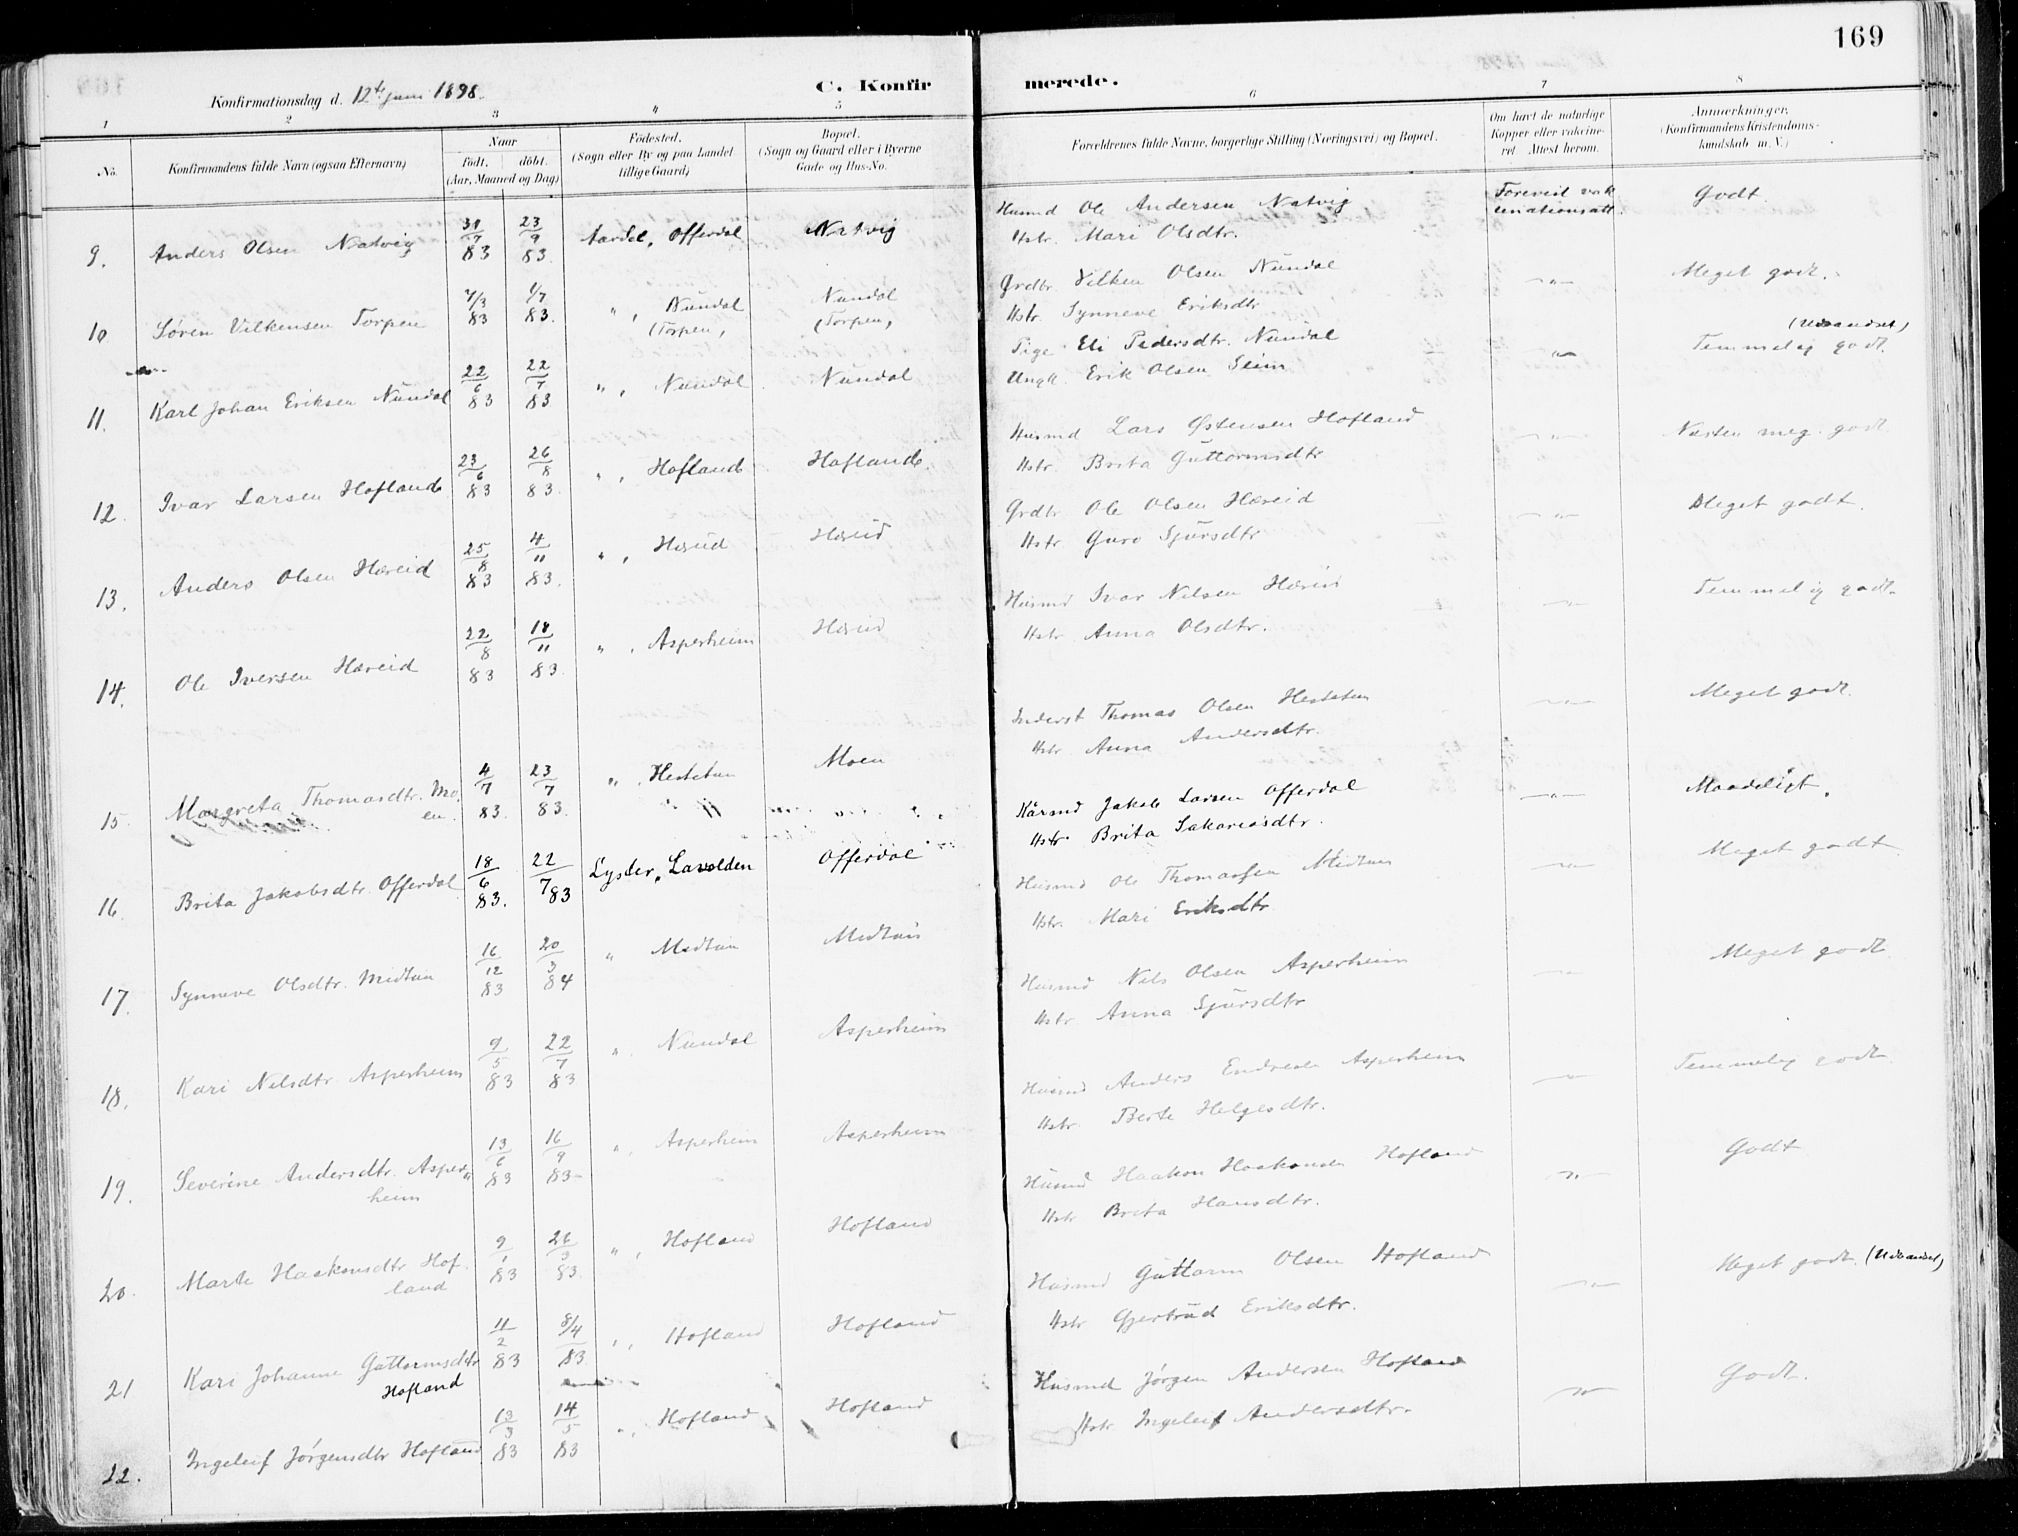 169
Konfirmationsdag d. 12te juni 1898.
C. Konfirmerede.
1 2 3 4 5 6 7 8
No.
Konfirmandens fulde Navn (ogsaa Efternavn)
Naar
født, døbt.
(Aar, Maaned og Dag)
Fødested.
(Sogn eller By og paa Landet
tillige Gaard)
Bopæl.
(Sogn og Gaard eller i Byerne
Gade og Hus-No.
Forældrenes fulde Navne, borgerlige Stilling (Næringsvei) og Bopæl.
Om havt de naturlige
Kopper eller vakcine-
ret. Attest herom.
Anmærkninger.
(Konfirmandens Kristendoms-
kundskab m. V.)
9. Anders Olsen Natvig 31/7 83 23/9 83. Aardal, Offerdal Natvig
Husmd Ole Andersen Natvig
Hstr. Mari Olsdtr.
Forevist vak
cinationsatt. Godt
10 Søren Vilkensen Torpen 7/3 83 1/7 83. " , Nundal (Torpen, Nundal (Torpen,
Grdbr Vilken Olsen Nundal
Hstr. Synneve Eriksdtr
" Meget godt.
11. Karl Johan Eriksen Nundal 22/6 83 22/7 83. " , Nundal Nundal
Pige Eli Pedersdtr. Nundal
Ungk. Erik Olsen Seim
" (Udvandret)
Temmelig godt.
12. Ivar Larsen Hofland 23/6 83 26/8 83. " , Hofland Hofland.
Husmd Lars Østensen Hofland
Hstr. Brita Guttormsdtr
" Næsten meg. godt
13. Anders Olsen Hæreid 25/8 83 4/11 83. " , Hæreid Hæreid
Grdbr Ole Olsen Hæreid
Hstr Guro Sjursdtr
" Meget godt.
14. Ole Iversen Hæreid 22/8 83 18/11 83. " , Asperheim Hæreid
Husmd Ivar Nilsen Hæreid
Hstr Anna Olsdtr.
" Temmelig godt.
15. Margreta Thomasdtr. Mo-
en. 4/7 83. 23/7 83. " , Hestetun Moen
Inderst Thomas Olsen Hestetun
Hstr. Anna Andersdtr.
" Meget godt.
16. Brita Jakobsdtr. Offerdal 18/6 83. 22/7 83 Lyster, Offerdal
Kårmd Jakob Larsen Offerdal
Hstr. Brita Sakariasdtr.
" Maadeligt.
17. Synneve Olsdtr. Midtun 16/12 83 20/3 84 " Midtun Midtun
Husmd Ole Thomassen Midtun
Hstr. Mari Eriksdtr
" Meget godt
18. Kari Nelsdtr. Asperheim 9/5 83 22/7 83 " , Nundal Asperheim
Husmd Nels Olsen Asperheim
Hstr. Anna Sjursdtr
" Meget godt
19. Severine Andersdtr. Asper-
heim 13/6 83 16/9 83 " , Asperheim Asperheim
Husmd Anders Endresen Asperheim
Hstr. Berte Helgesdtr.
" Temmelig godt
20. Marte Haakonsdtr Hof-
land 9/1 83 26/3 83. " , Hofland Hofland
Husmd Haakon Haakonsen Hofland
Hstr Brita Hansdtr.
" Godt
21 Kari Johanne Guttormsdtr
Hofland 11/2 83 8/4 83. " , Hofland Hofland
Husmd Guttorm Olsen Hofland
Hstr Gjertrud Eriksdtr.
" Meget godt. (Udvandret)
22. Ingeleif Jørgensdtr Hofland 13/3 83 14/5 83 " , Hofland Hofland
Husmd Jørgen Andersen Hofland
Hstr Ingeleif Andersdtr.
" Godt.